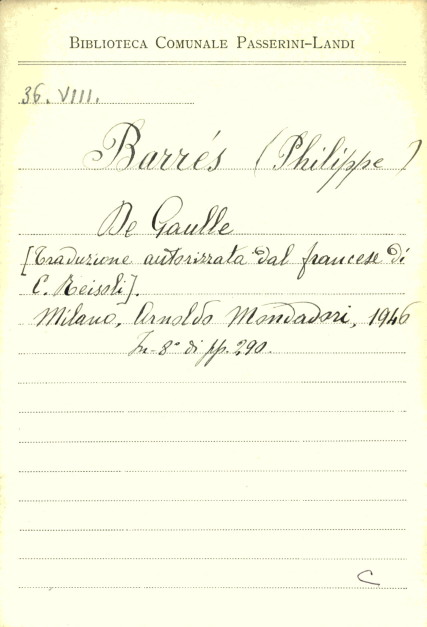 BIBLIOTECA COMUNALE PASSERINI-LANDI
36. VIII.
Barrés (Philippe)
De Gaulle
[Traduzione autorizzata dal francese di
C. Reisoli].
Milano, Arnoldo Mondadori, 1946
In-8° di pp. 290.
C